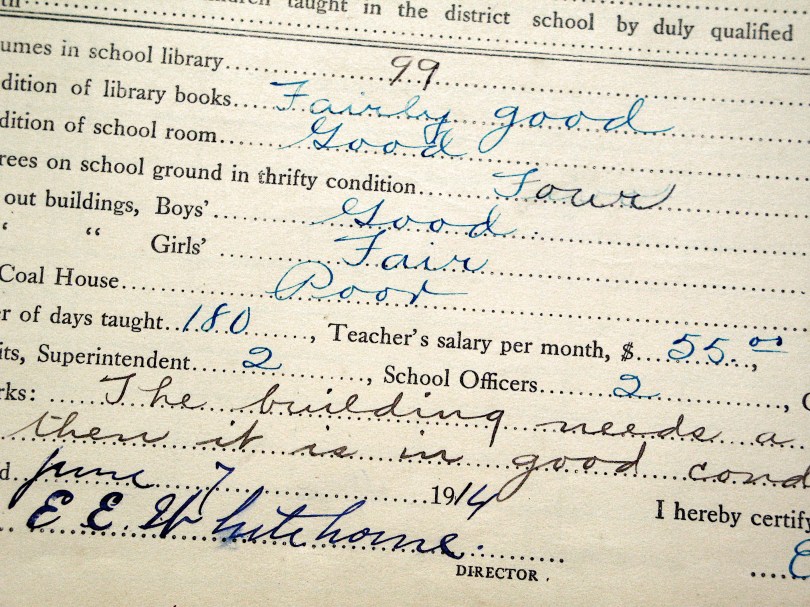 taught in the district school by duly qualified
umes in school library 99
dition of library books Fairly good
dition of school room Good
rees on school ground in thrifty condition Four
out buildings, Boys' Good
“ “ Girls' Fair
Coal House Poor
r of days taught 180, Teacher's salary per month, $ 55.00,
its, Superintendent 2, School Officers 2,
rks: The building needs a
then it is in good cond
d June 7 1914 I hereby certify
E E Whitehorne.
DIRECTOR.